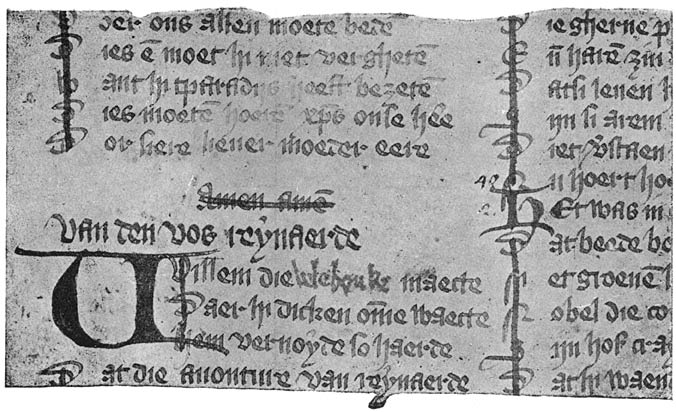 Voer ons allen moete bedē
Dies ē moet hi niet verghetē
Want hi tparadijs heeft bezetē
Dies moetē hoerē xp̄s onse he̅e
Dor siere liever moeder eere
Amen amē
van den vos reynaerde
Willem die vele bouke maecte
Daer hi dicken om̄e waecte
Hem vernoyde so haerde
Dat die avonture van reynaerde
Die gherne p
En̄ harē zin
Datsi leven h
Sijn si arem
Niet v̄staen
Nu hoert hoe
Het was in
Dat beede bo
Met groenē l
Nobel die co
Sijn hof cra
Dat hi waen